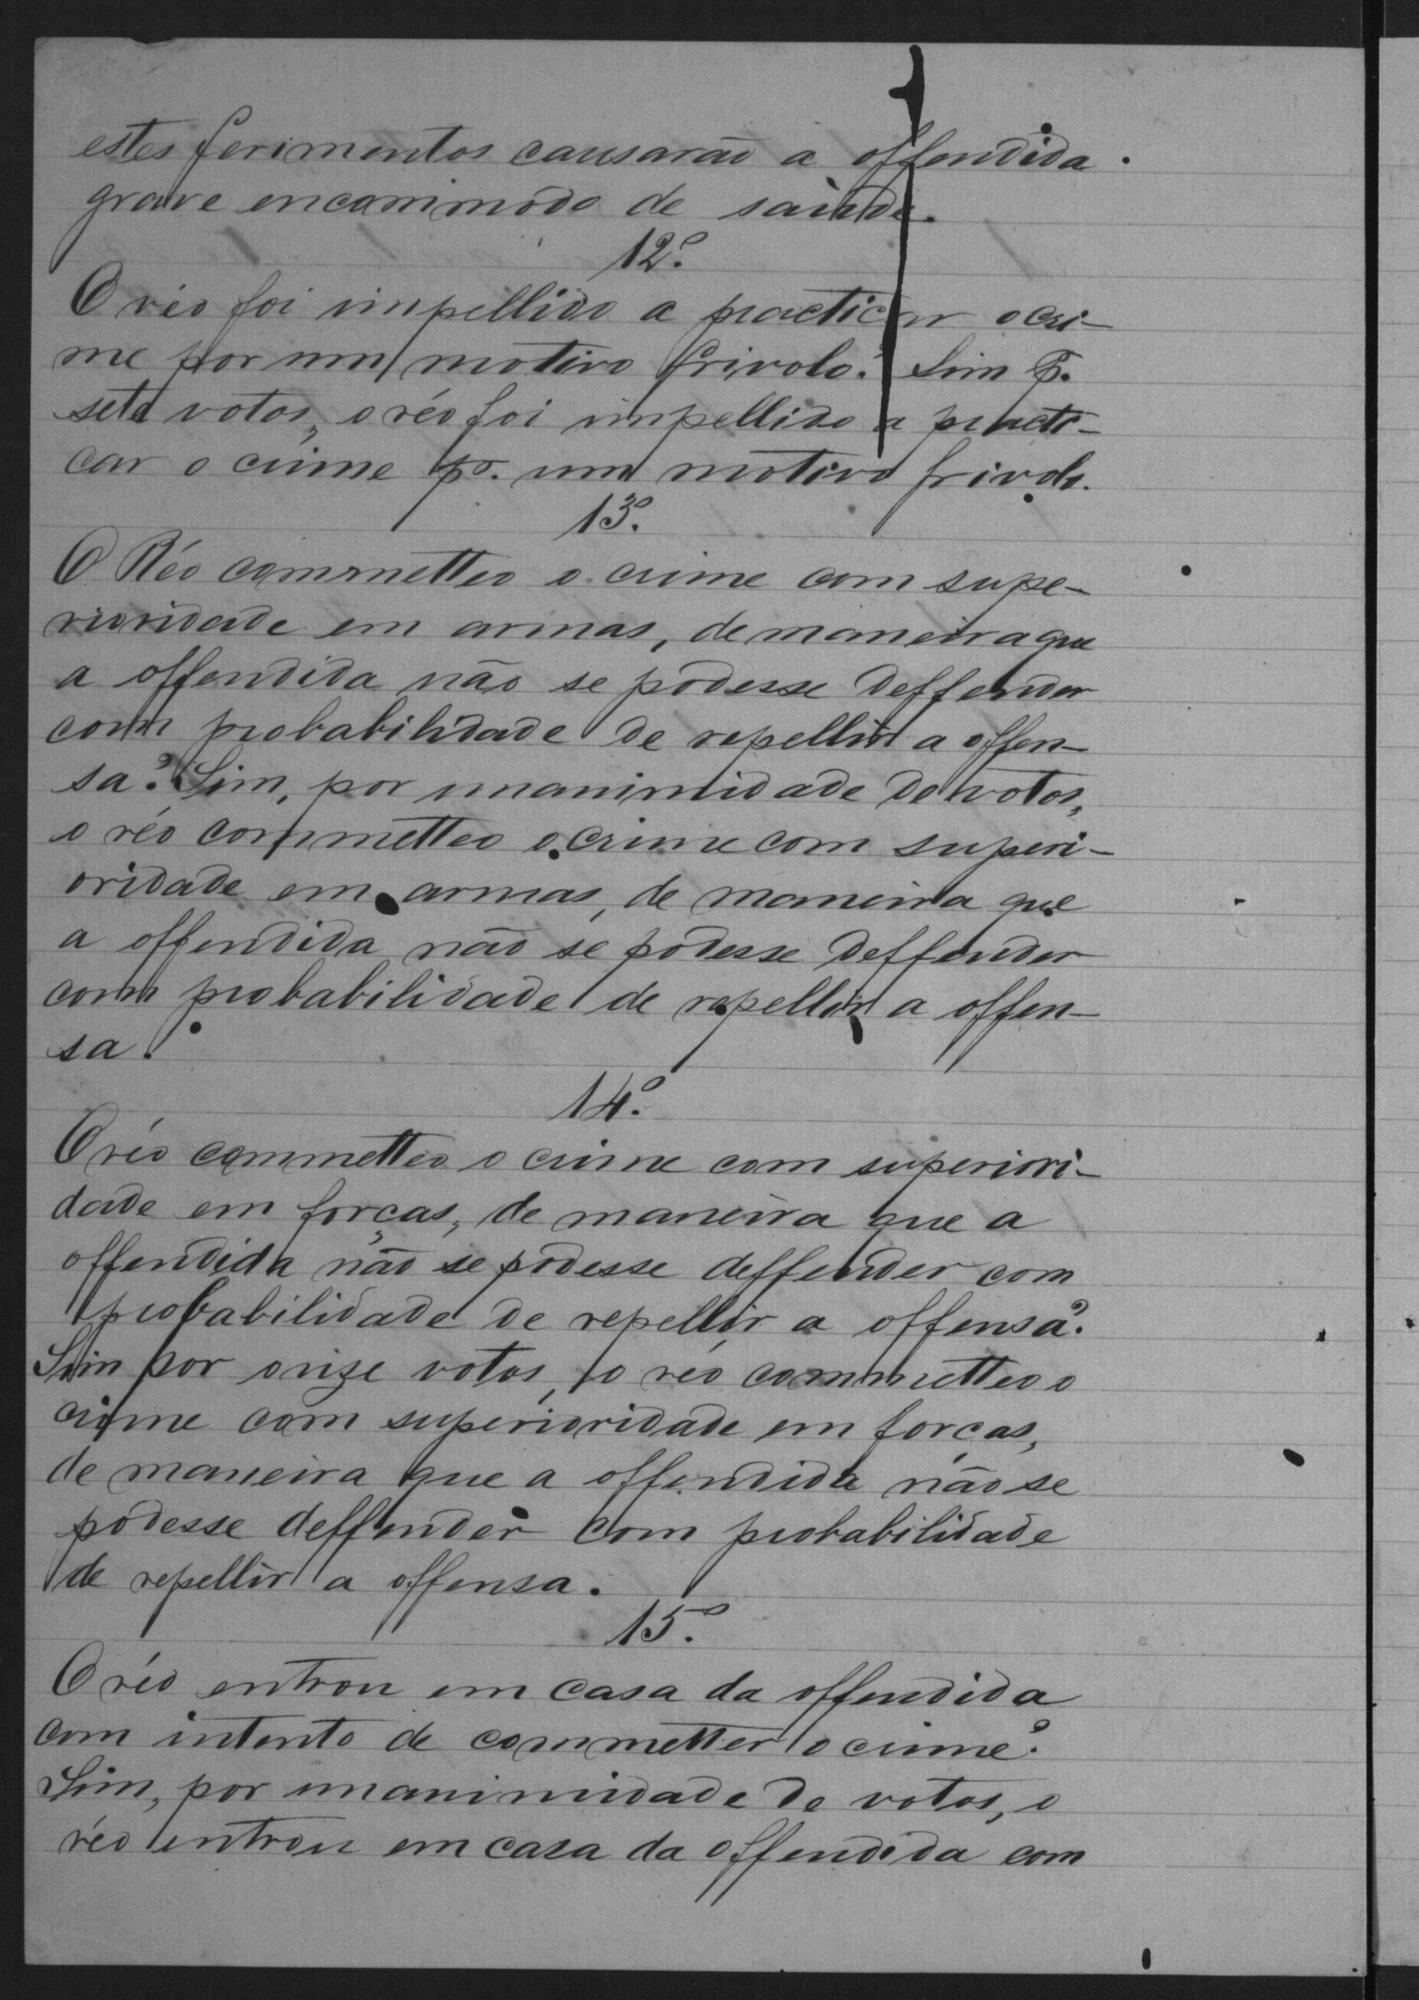 estes ferimentos causarão a offendida
grave encommodo de saúde.
12º.
O réo foi impellido a practicar o cri-
me por um motivo frivolo? Sim P.
sete votos, o réo foi impellido a practi-
car o crime pr. um motivo frivolo.
13º.
O Réo commetteo o crime com supe-
rioridade em armas, de maneira que
a offendida não se podesse deffender
com probabilidade de repellir a offen-
sa? Sim, por unanimidade de votos,
o réo commetteo o crime com superi-
oridade em armas, de maneira que
a offendida não se podesse deffender
com probabilidade de repellir a offen-
sa.
14º.
O réo commetteo o crime com superiori-
dade em forças, de maneira que a
offendida não se podesse deffender com
probabilidade de repellir a offensa?
Sim por onze votos, o réo commetteo o
crime com superioridade em forças,
de maneira que a offendida não se
podesse deffender com probabilidade
de repellir a offensa.
15º.
O réo entrou em casa da offendida
com intento de commetter o crime?
Sim, por unanimidade de votos, o
réo entrou em casa da offendida com